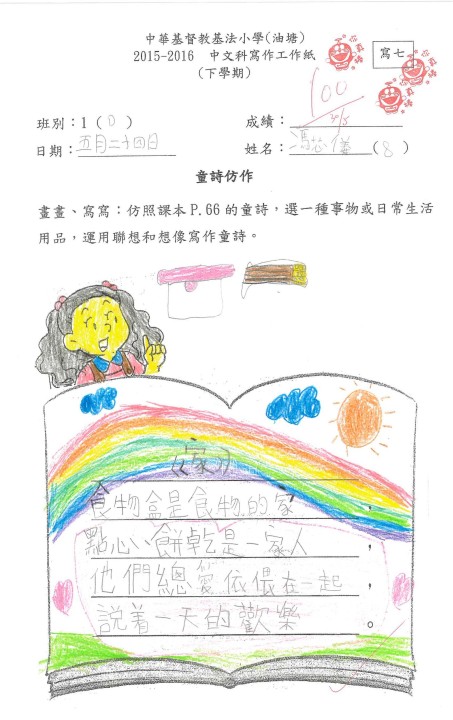 中華基督教基法小學(油塘)
2015-2016 中文科寫作工作紙
(下學期)
寫七
100
班別:1( D )
成績:
日期:五月二十四日
姓名:馮芯儀(8)
童詩仿作
畫畫、寫寫:仿照課本P.66的童詩,選一種事物或日常生活
用品,運用聯想和想像寫作童詩。
《家》
食物盒是食物的家,
點心、餅乾是一家人,
他們總愛依偎在一起,
說着一天的歡樂。